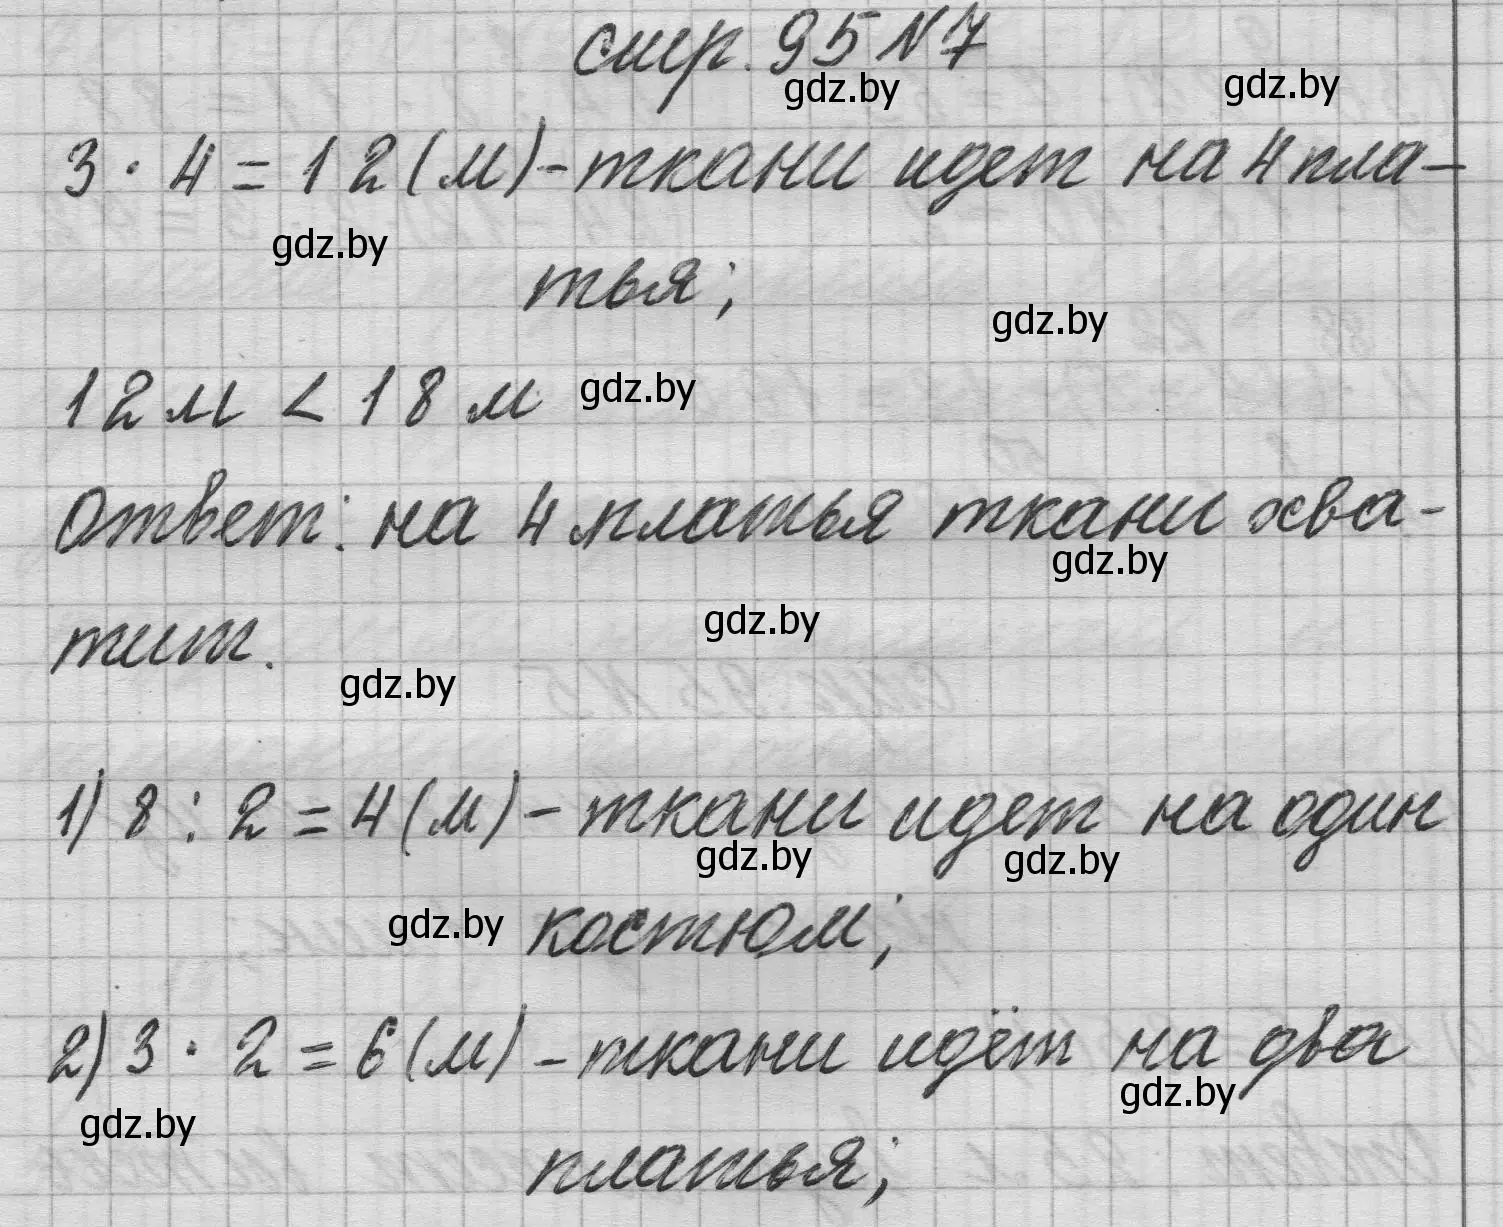 стр. 95 N 7
gdz.by gdz.by
3 · 4 = 12 (м) - ткани идет на 4 пла-
gdz.by
тья;
gdz.by
12 м < 18 м gdz.by
Ответ: на 4 платья ткани хва-
gdz.by
gdz.by
тит.
gdz.by
1) 8 : 2 = 4 (м) - ткани идет на один
gdz.by gdz.by
gdz.by костюм;
2) 3 · 2 = 6 (м) - ткани идёт на два
gdz.by
gdz.by
платья;